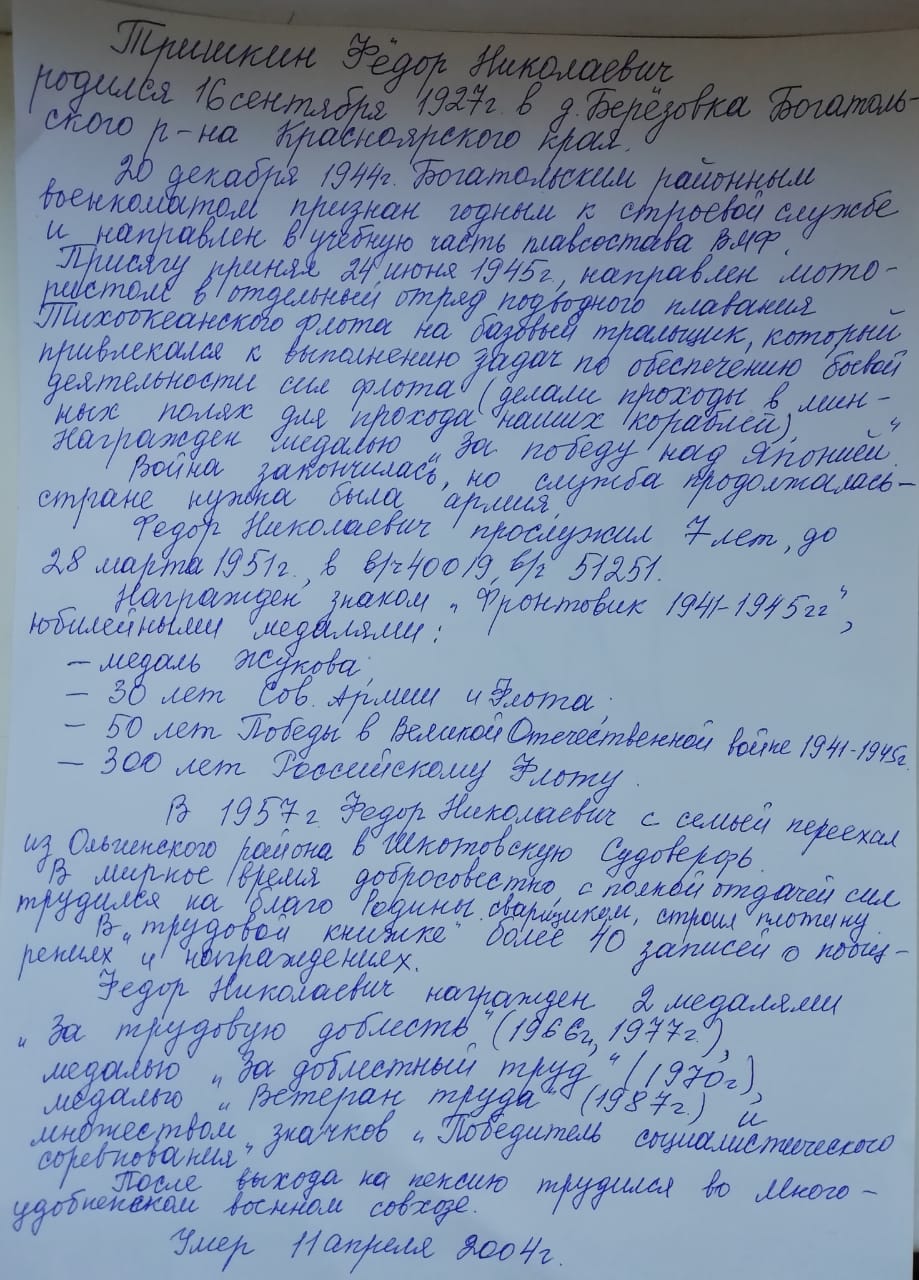 Тришкин Фёдор Николаевич
родился 16 сентября 1927г. в д. Берёзовка Боготоль-
ского р-на Красноярского края.
20 декабря 1944г. Боготольским районным
военкоматом признан годным к строевой службе
и направлен в учебную часть плавсостава ВМФ.
Присягу принял 24 июня 1945г., направлен мото-
ристом в отдельный отряд подводного плавания
Тихоокеанского флота на базовый тральщик, который
привлекался к выполнению задач по обеспечению боевой
деятельности сил флота (делали проходы в мин-
ных полях для прохода наших кораблей).
Награжден медалью „За победу над Японией".
Война закончилась, но служба продолжалась –
стране нужна была армия.
Федор Николаевич прослужил 7 лет, до
28 марта 1951г., в в/ч 40019, в/ч 51251.
Награжден знаком „Фронтовик 1941-1945гг",
юбилейными медалями:
– медаль Жукова
– 30 лет Сов. Армии и Флота
– 50 лет Победы в Великой Отечественной войне 1941-1945г.
– 300 лет Российскому Флоту.
В 1957г. Федор Николаевич с семьей переехал
из Ольгинского района в Шкотовскую Судоверфь.
В мирное время добросовестно, с полной отдачей сил
трудился на благо Родины сварщиком, строил плотину.
В „трудовой книжке" более 40 записей о поощ-
рениях и награждениях.
Федор Николаевич награжден 2 медалями
„За трудовую доблесть" (1966г, 1977г.),
медалью „За доблестный труд" (1970г),
медалью „Ветеран труда" (1987г.) и
множеством значков „Победитель социалистического
соревнования".
После выхода на пенсию трудился во Много-
удобненском военном совхозе.
Умер 11 апреля 2004г.